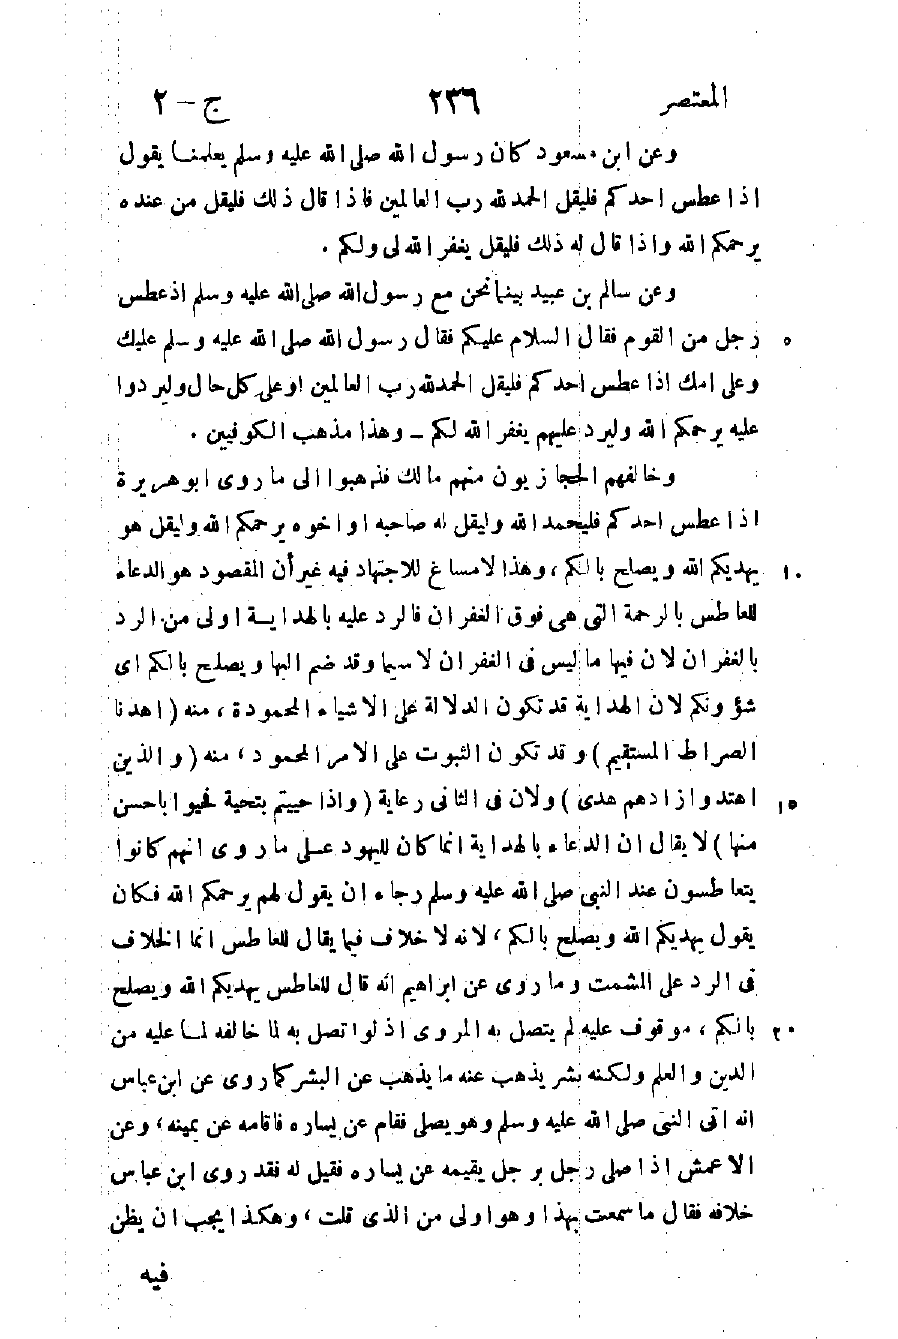 المعتصر ٢٣٦ ج – ٢
وعن ابن مسعود كان رسول الله صلى الله عليه وسلم يعلمنا يقول
اذا عطس احدكم فليقل الحمد لله رب العالمين فاذا قال ذلك فليقل من عنده
يرحمكم الله واذا قال له ذلك فليقل يغفر الله لى ولكم .
وعن سالم بن عبيد بينما نحن مع رسول الله صلى الله عليه وسلم اذ عطس
رجل من القوم فقال السلام عليكم فقال رسول الله صلى الله عليه وسلم عليك ٥
وعلى امك اذا عطس احدكم فليقل الحمد لله رب العالمين او على كل حال وليردوا
عليه يرحمكم الله وليرد عليهم يغفر الله لكم – وهذا مذهب الكوفيين .
وخالفهم الحجازيون منهم مالك فذهبوا الى ما روى ابو هريرة
اذا عطس احدكم فليحمد الله وليقل له صاحبه او اخوه يرحمكم الله وليقل هو
يهديكم الله ويصلح بالكم ، وهذا لا مساغ للاجتهاد فيه غير أن المقصود هو الدعاء ١٠
للعاطس بالرحمة التى هى فوق الغفران فالرد عليه بالهداية اولى من الرد
بالغفران لان فيها ما ليس فى الغفران لا سيما وقد ضم اليها ويصلح بالكم اى
شؤونكم لان الهداية قد تكون الدلالة على الاشياء المحمودة ، منه ( اهدنا
الصراط المستقيم ) و قد تكون الثبوت على الامر المحمود ، منه ( والذين
اهتدوا زادهم هدى ) ولان فى الثانى رعاية ( واذا حييتم بتحية فحيوا باحسن ١٥
منها ) لا يقال ان الدعاء بالهداية انما كان لليهود على ما روى انهم كانوا
يتعاطسون عند النبى صلى الله عليه وسلم رجاء ان يقول لهم يرحمكم الله فكان
يقول يهديكم الله ويصلح بالكم ، لانه لا خلاف فيما يقال للعاطس انما الخلاف
فى الرد على المشمت وما روى عن ابراهيم انه قال للعاطس يهديكم الله ويصلح
بالكم ، موقوف عليه لم يتصل به المروى اذ لو اتصل به لما خالفه لما عليه من ٢٠
الدين والعلم ولكنه بشر يذهب عنه ما يذهب عن البشر كما روى عن ابن عباس
انه اتى النبى صلى الله عليه وسلم وهو يصلى فقام عن يساره فاقامه عن يمينه ، وعن
الاعمش اذا صلى رجل برجل يقيمه عن يساره فقيل له فقد روى ابن عباس
خلافه فقال ما سمعت بهذا وهو اولى من الذى قلت ، وهكذا يجب ان يظن
فيه